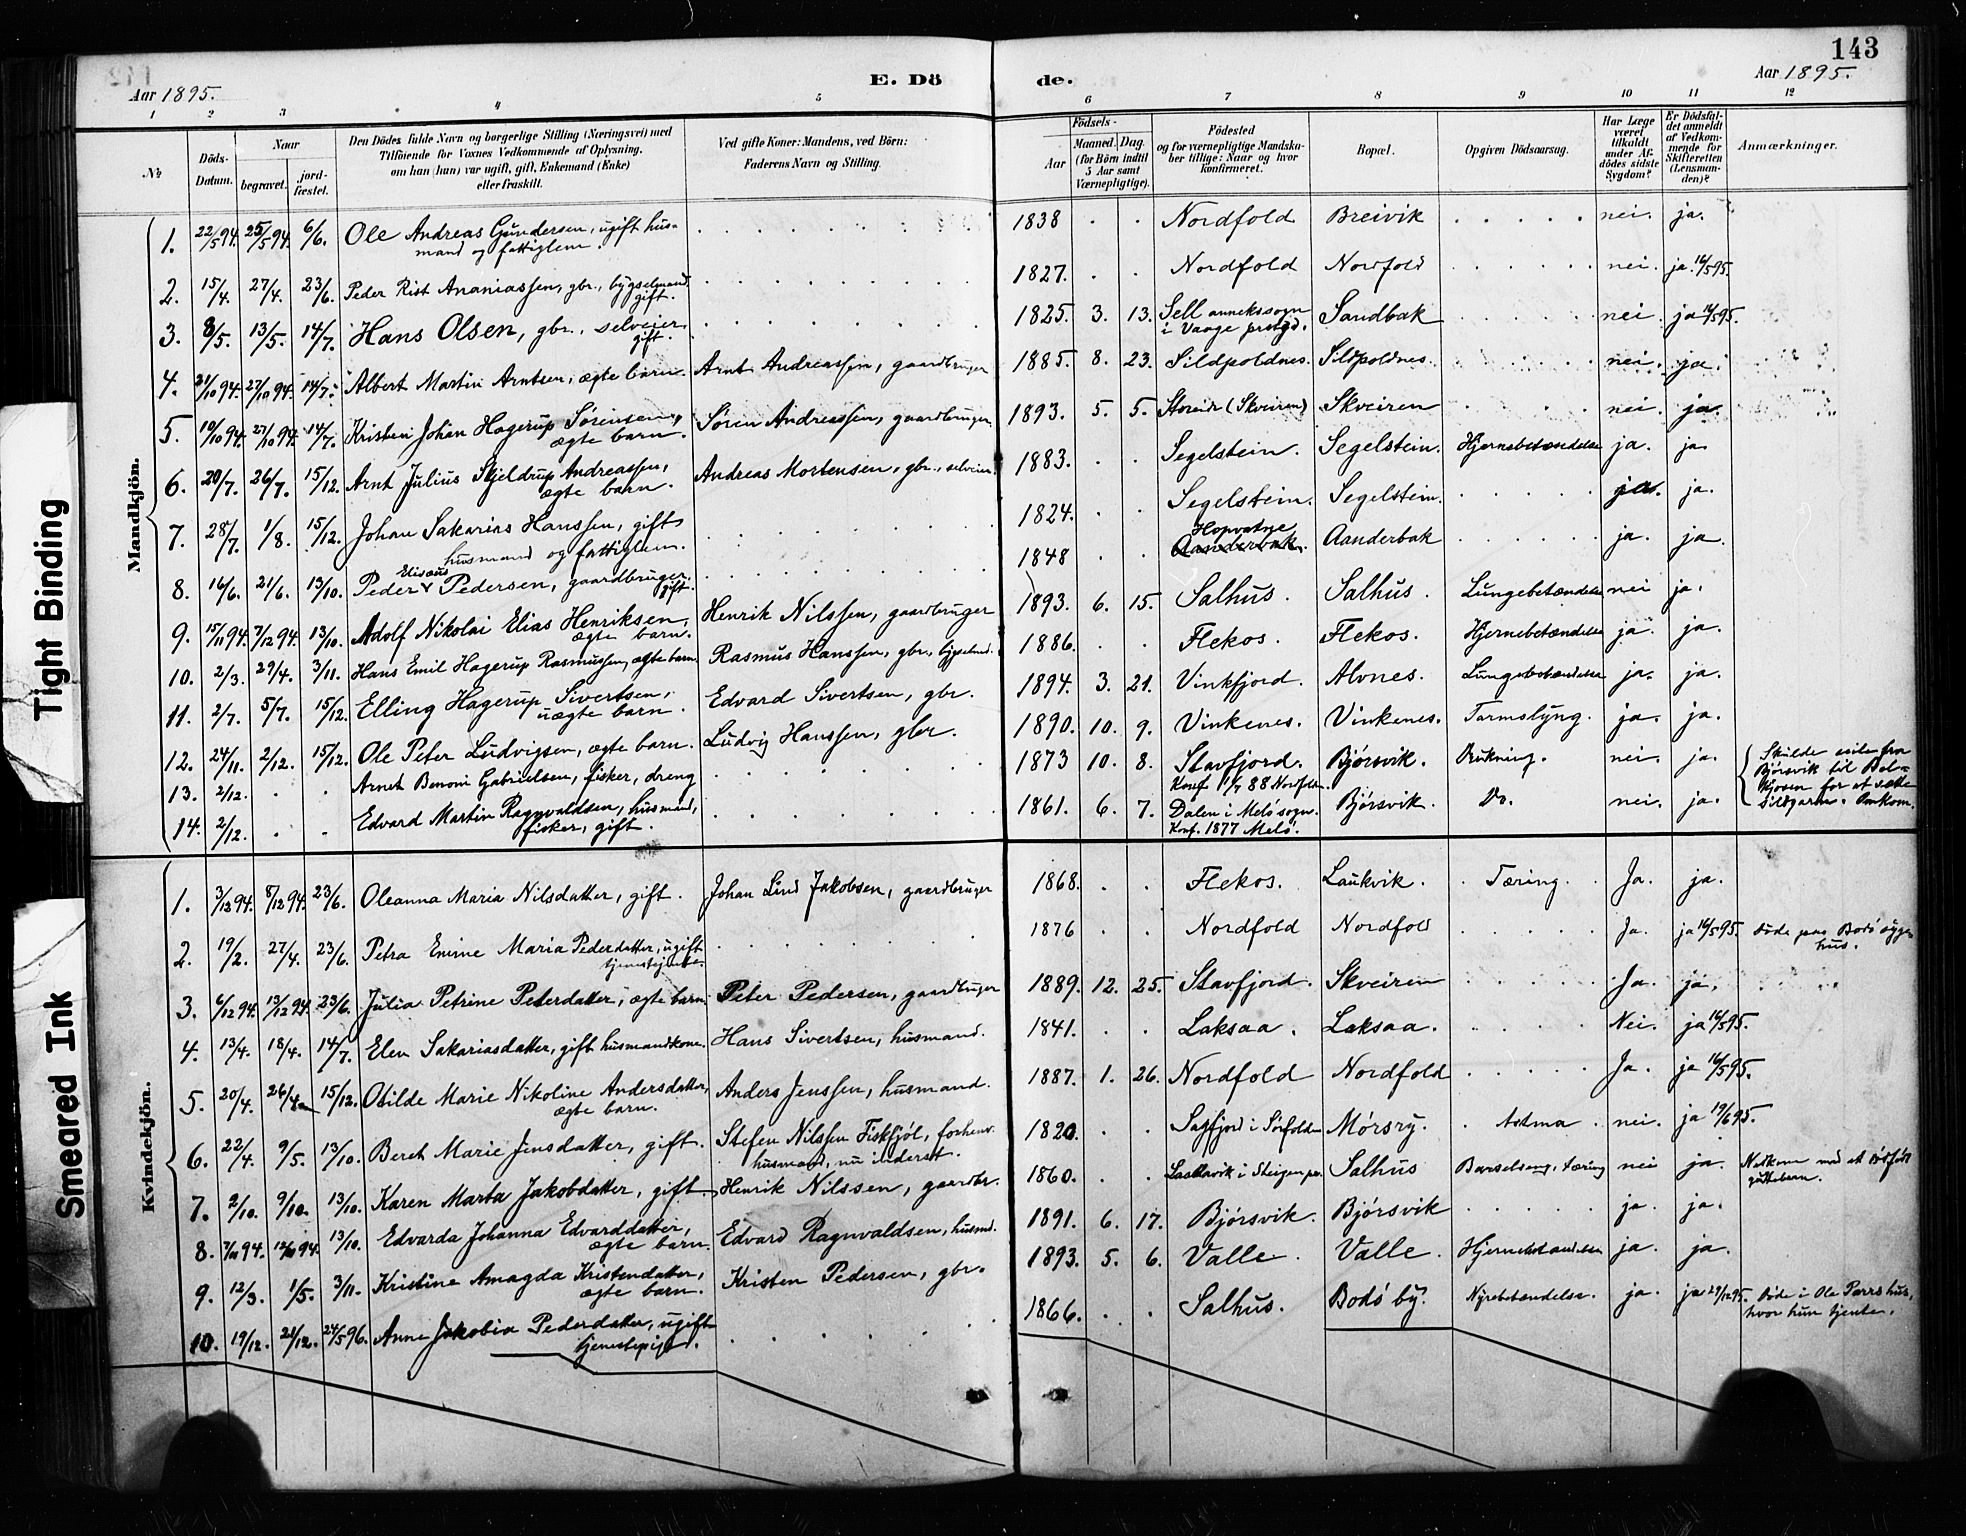 143
E. Dö de.
Aar 1895. Aar 1895.
1 2 3 4 5 6 7 8 9 10 11 12
№ Döds-Datum. Naar begravet. jordfæstet. Den Dödes fulde Navn og borgerlige Stilling (Næringsvei) med Tilföiende for Voxnes Vedkommende af Oplysning, om han (hun) var ugift, gift, Enkemand (Enke) eller fraskilt. Ved gifte Koner: Mandens, ved Börn: Faderens Navn og Stilling. Födsels- Aar Maaned. Dag. (for Börn indtil 5 Aar samt Værnepligtige). Födested og for værnepligtige Mandskaber tillige: Naar og hvor konfirmeret. Bopæl. Opgiven Dödsaarsag. Har Læge været tilkaldt under Afdödes sidste Sygdom? Er Dödsfaldet anmeldt af Vedkommende for Skifteretten (Lensmanden)? Anmærkninger.
Mandkjön.
1. 22/5 94. 25/5 94. 6/6. Ole Andreas Gundersen, ugift husmand og fattiglem. 1838 Nordfold Breivik nei. ja.
2. 15/4. 27/4. 23/6. Peder Rist Ananiassen, gbr., bygselmand gift. 1827. Nordfold Norfold nei. ja. 16/5 95.
3. 8/5. 13/5. 14/7. Hans Olsen, gbr., selveier gift. 1825. 3. 13. Sell annekssogn i Vaage prstgd. Sandbak nei. ja 16/5 95.
4. 21/10 94. 27/10 94. 14/7. Albert Martin Arntsen, ægte barn. Arnt Andreassen, gaardbruger 1885. 8. 23. Sildpoldnes. Sildpoldnes. nei. ja.
5. 19/10 94. 27/10 94. 14/7. Kristen Johan Hagerup Sørensen, ægte barn. Søren Andreassen, gaardbruger 1893. 5. 5. (Skveiren) Skveiren nei. ja.
6. 20/7. 26/7. 15/12. Arnt Julius Skjeldrup Andreassen, ægte barn. Andreas Mortensen, gbr., selveier. 1883. Segelstein. Segelstein. Hjernebetændelse ja. ja.
7. 28/7. 1/8. 15/12. Johan Sakarias Hanssen, gift husmand og fattiglem. 1824. Segelstein. Segelstein. ja. ja.
8. 16/6. 21/6. 13/10. Peder Elisæus Pedersen, gaardbruger. gift. 1848 Hopvatne Aanderbak. Aanderbak ja. ja.
9. 15/11 94. 7/12 94. 13/10. Adolf Nikolai Elias Henriksen, ægte barn. Henrik Nilssen, gaardbruger 1893. 6. 15. Salhus. Salhus. Lungebetændelse nei ja.
10. 2/3. 29/4. 3/11. Hans Emil Hagerup Rasmussen, ægte barn Rasmus Hanssen, gbr., bygselmd. 1886. Flekos. Flekos. Hjernebetændelse ja. ja.
11. 2/7. 5/7. 15/12. Elling Hagerup Sivertsen, uægte barn. Edvard Sivertsen, gbr. 1894. 3. 21. Vinkfjord. Alvnes. Lungebetændelse ja. ja.
12. 24/11. 2/12. 15/12. Ole Peter Ludvigsen, ægte barn. Ludvig Hanssen, gbr. 1890. 10. 9. Vinkenes. Vinkenes. Tarmslyng. ja. ja.
13. 2/12. Arnet Benoni Gabrielsen, fisker, dreng 1873 10. 8. Stavfjord. Konf 1/7 88 Nordfold. Bjørsvik. Drukning. nei. ja. Skulde seile fra Bjørsvik til kjosen for at sætte Sildgarn. Omkom.
14. 2/12. Edvard Martin Ragnvaldsen, husmand, fisker, gift. 1861. 6. 7. Dalen i Melø sogn. Konf. 1877 Melø. Bjørsvik. Do. nei. ja.
Kvindekjön.
1. 3/12 94. 8/12 94. 23/6. Oleanna Maria Nilsdatter, gift. Johan Lind Jakobsen, gaardbruger 1868. Flekos. Laukvik. Tæring. Ja. ja.
2. 19/2. 27/4. 23/6. Petra Enine Maria Pederdatter, ugift tjenstejente. 1876 Nordfold Nordfold Ja. ja 16/5 95. Døde paa Bodø sygehus.
3. 6/12 94. 13/12 94. 23/6. Julia Petrine Peterdatter, ægte barn Peter Pedersen, gaardbruger 1889. 12. 25. Stavfjord. Skveiren Ja. ja.
4. 13/4. 18/4. 14/7. Elen Sakariasdatter, gift husmandkone. Hans Sivertsen, husmand. 1841. Laksaa. Laksaa. Nei. ja 16/5 95.
5. 20/4. 26/4. 15/12. Otilde Marie Nikoline Andersdatter, ægte barn. Anders Jenssen, husmand. 1887. 1. 26. Nordfold Nordfold Ja. ja 16/5 95.
6. 22/4. 9/5. 13/10. Beret Marie Jensdatter, gift. Stefen Nilssen Fiskfjøl, forhenv. husmand, nu inderst. 1820. Sagfjord i Sørfolden Mørsry. Astma nei. ja 19/6 95.
7. 2/10. 9/10. 13/10. Karen Marta Jakobdatter, gift. Henrik Nilssen, gaardbr. 1860. i Steigen Salhus Barselseng, tæring nei ja. Nedkom med et dødfødt guttebarn.
8. 94. 94. 13/10. Edvarda Johanna Edvarddatter, ægte barn. Edvard Ragnvaldsen, husmd. 1891. 6. 17. Bjørsvik. Bjørsvik ja. ja.
9. 12/3. 1/5. 3/11. Kristine Amagda Kristendatter, ægte barn. Kristen Pedersen, gbr. 1893. 5. 6. Valle. Valle. Hjernebetændelse ja. ja.
10. 19/12. 21/12. 24/5 96. Anne Jakobia Pederdatter, ugift tjenestepige. 1866. Salhus. Bodø by. Nyrebetændelse. ja. ja 29/12 95. Døde i Ole hus, hvor hun tjente.
Tight Binding
Smeared Ink